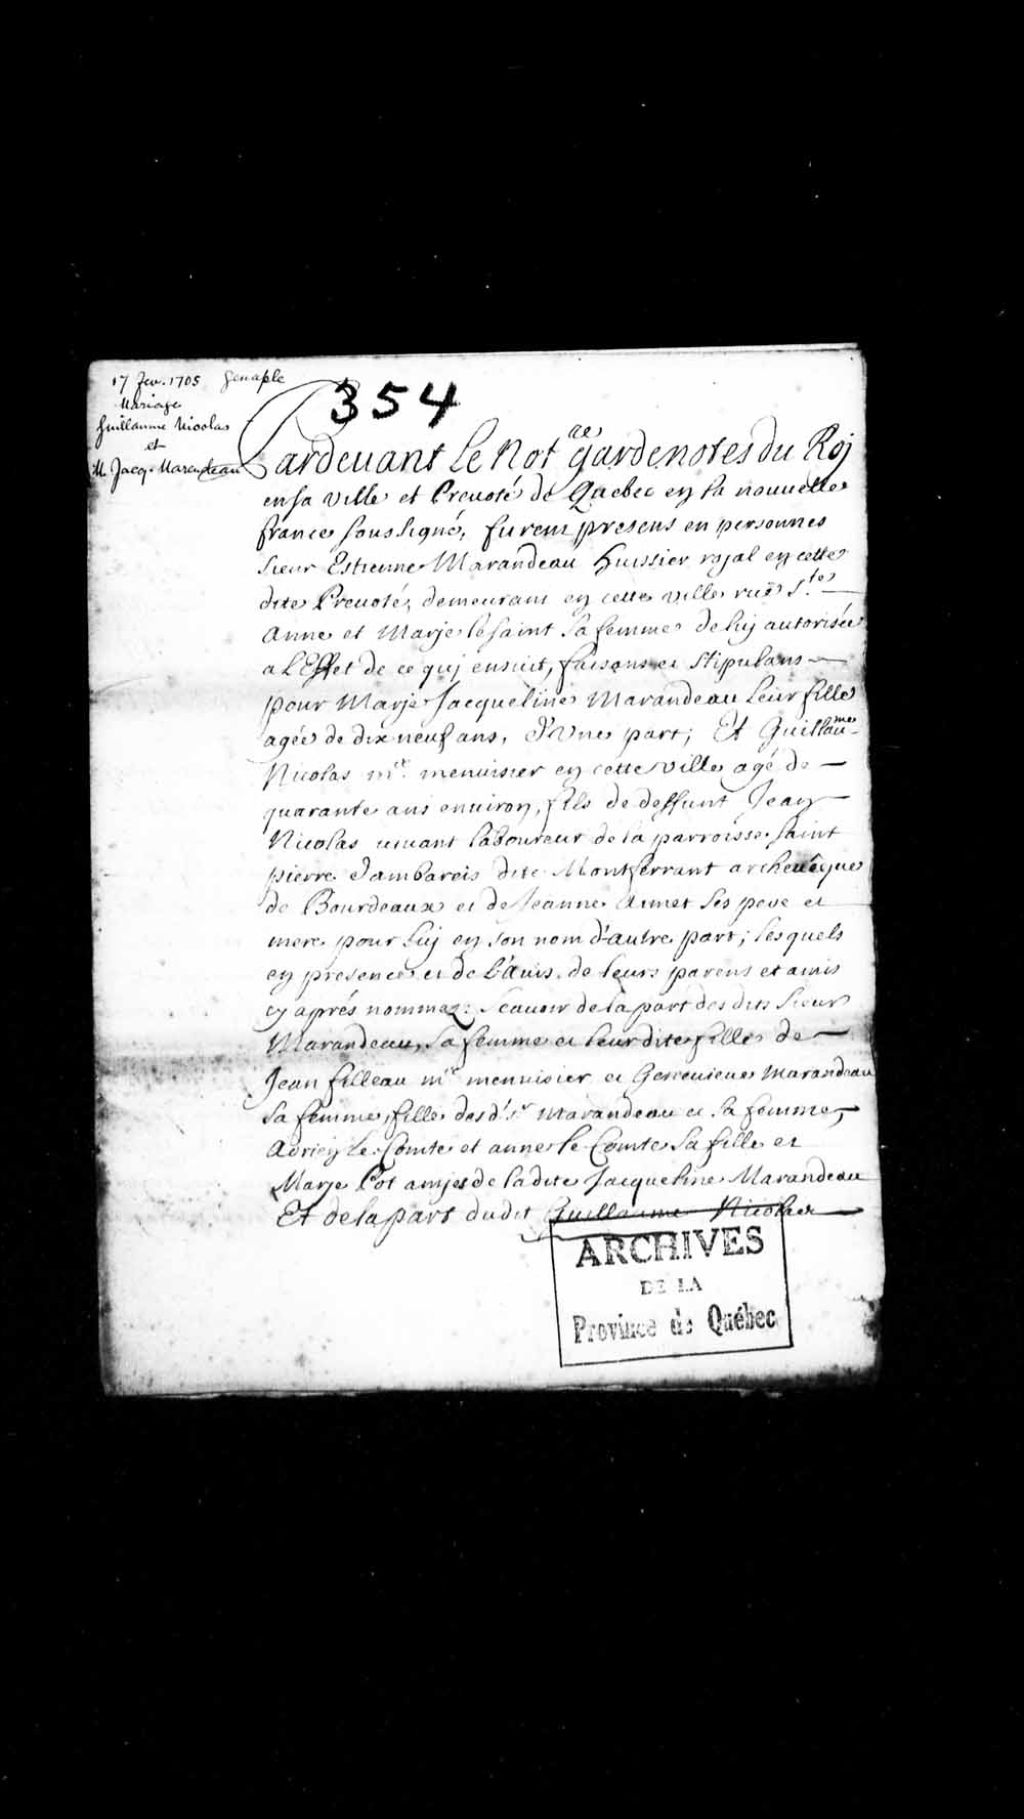 17 fev. 1705 Genaple
Mariage
Guillaume Nicolas
et
M. Jacq. Marandeau
354
Pardevant Le Not.re gardenotes du Roj
en sa ville et Prevoté de Quebec en la nouvelle
france soussigné, furent presens en personnes
sieur Estienne Marandeau huissier rojal en cette
dite Prevoté, demeurant en cette ville ruë S.te
Anne et Marje lesaint sa femme de luj autorisée
a l'Effet de ce quj ensuit, faisans et stipulans
pour Marje Jacqueline Marandeau leur fille
agée de dix neuf ans, d'Une part; Et Guillau.me
Nicolas m.e menuisier en cette ville agé de
quarante ans environ, fils de deffunt Jean
Nicolas vivant laboureur de la parroisse saint
pierre d'ambareis dite Montferrant archevêque
de Bourdeaux et de Jeanne Annet ses pere et
mere pour luj en son nom d'autre part; lesquels
en presence et de l'avis de leurs parens et amis
cy aprés nommez: Scavoir de la part des dits sieur
Marandeau, sa femme et leur dite fille de
Jean filleau m.e menuisier et Genevieve Marandeau
sa femme, fille des d. s.r Marandeau et sa femme,
Adrien le Comte et anne le Comte sa fille et
Marje Pot amjes de ladite Jacqueline Marandeau
Et de la part dudit Guillaume Nicolas
ARCHIVES
DE LA
Province de Québec